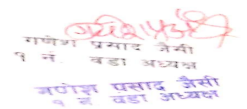 गणेश प्रसाद जैसी
१ नं. वडा अध्यक्ष
गणेश प्रसाद जैसी
१ नं. वडा अध्यक्ष